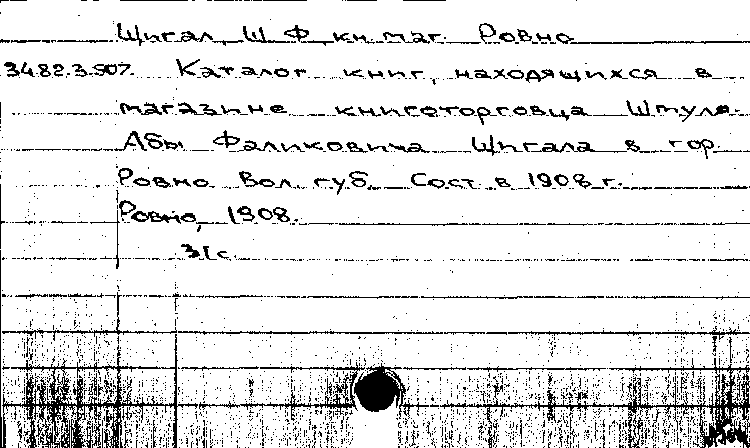 Щигал, Ш. Ф. кн. маг. Ровно
34.82.3.507. Каталог книг, находящихся в
магазине книготорговца Шмуля-
Абы Фаликовича Щигала в гор.
Ровно Вол. губ. Сост. в 1908 г.
Ровно, 1908.
31 с.